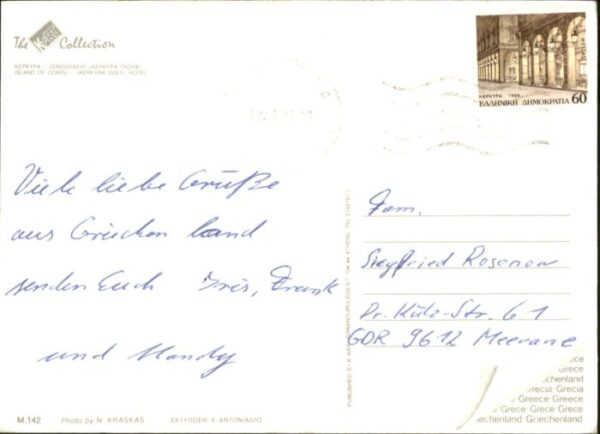 The Collection
ΚΕΡΚΥΡΑ - ΞΕΝΟΔΟΧΕΙΟ «ΚΕΡΚΥΡΑ ΓΚΟΛΦ»
ISLAND OF CORFU - «KERKYRA GOLF» HOTEL
ΚΕΡΚΥΡΑ 1988
ΕΛΛΗΝΙΚΗ ΔΗΜΟΚΡΑΤΙΑ 60
Viele liebe Grüße
aus Griechenland
senden Euch Iris, Frank
und Mandy
Fam.
Siegfried Rosenow
Dr. Külz-Str. 61
GDR 9612 Meerane
ece
Grèce
chenland
recia Grecia
Greece Greece
Grèce Grèce Grèce
iechenland Griechenland
M.142 Photo by N. KRASKAS ΕΚΤΥΠΩΣΗ Χ. ΑΝΤΩΝΙΑΔΗΣ